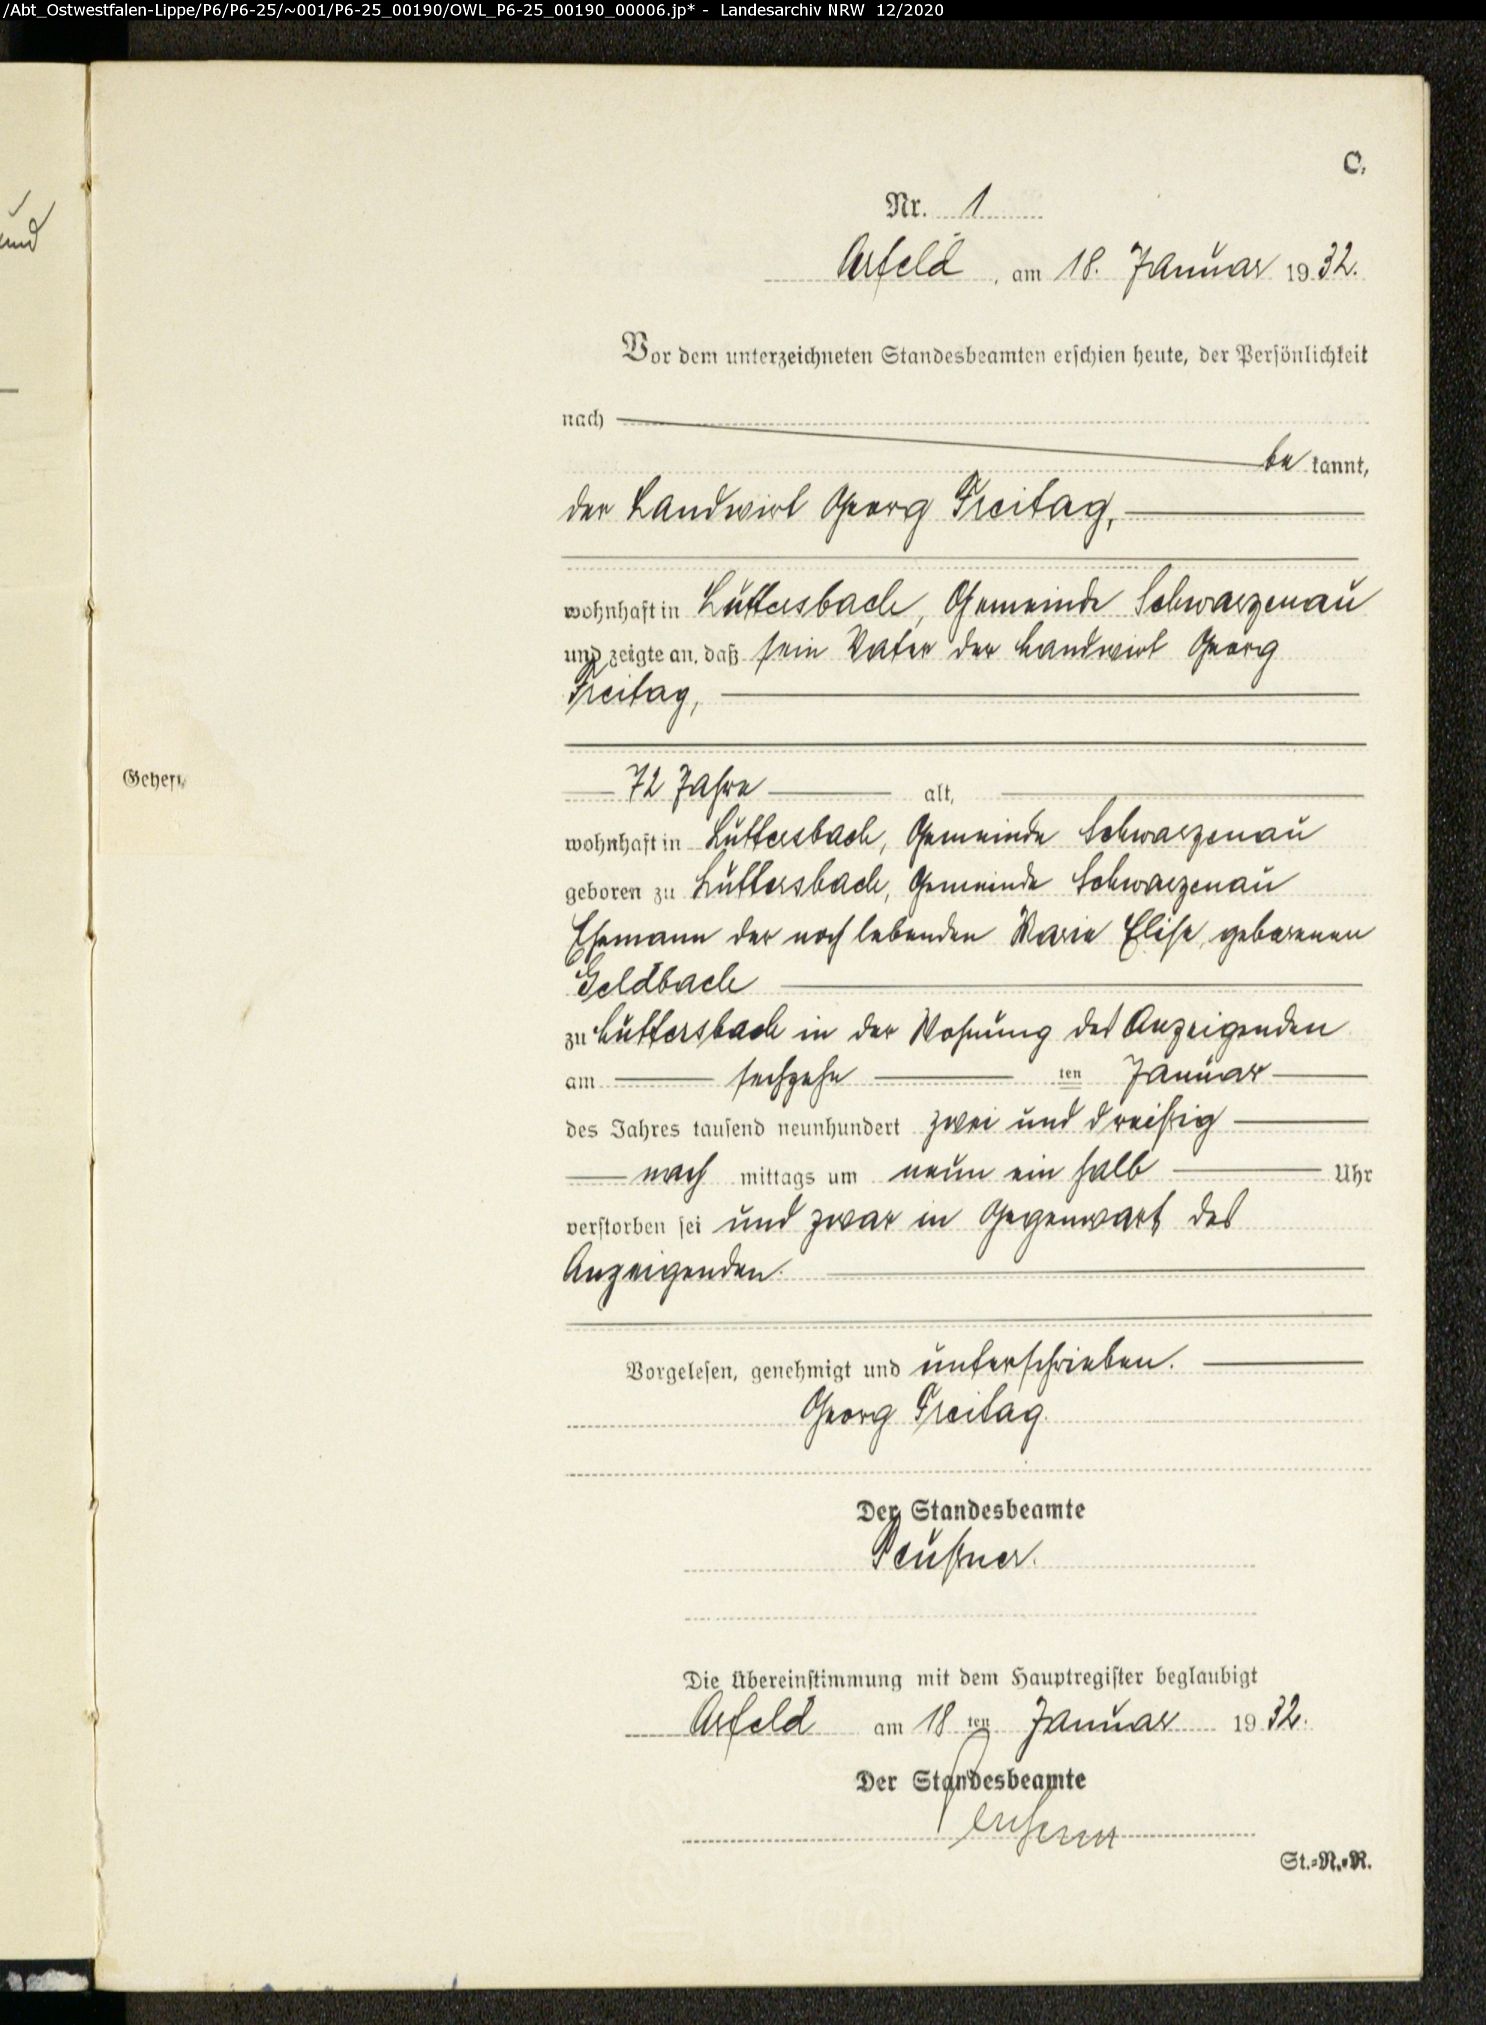 /Abt_Ostwestfalen-Lippe/P6/P6-25/~001/P6-25_00190/OWL_P6-25_00190_00006.jp* - Landesarchiv NRW 12/2020
und
C.
Nr. 1
Arfeld, am 18. Januar 1932.
Vor dem unterzeichneten Standesbeamten erschien heute, der Persönlichkeit
nach
be kannt,
der Landwirt Georg Freitag,
wohnhaft in Lüttersbach, Gemeinde Schwarzenau
und zeigte an, daß sein Vater der Landwirt Georg
Freitag,
Gehes.
72 Jahre alt,
wohnhaft in Lüttersbach, Gemeinde Schwarzenau
geboren zu Lüttersbach, Gemeinde Schwarzenau
Ehemann der noch lebenden Marie Elise, geborenen
Geldbach
zu Luttersbach in der Wohnung des Anzeigenden
am sechzehn ten Januar
des Jahres tausend neunhundert zwei und dreißig
nach mittags um neun ein halb Uhr
verstorben sei und zwar in Gegenwart des
Anzeigenden.
Vorgelesen, genehmigt und unterschrieben.
Georg Freitag.
Der Standesbeamte
Peußner.
Die Übereinstimmung mit dem Hauptregister beglaubigt
Arfeld am 18 ten Januar 1932.
Der Standesbeamte
St.-N.-R.